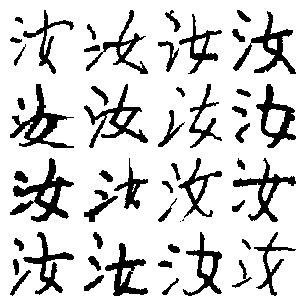 汝汝汝汝
汝汝汝汝
汝汝汝汝
汝汝汝汝